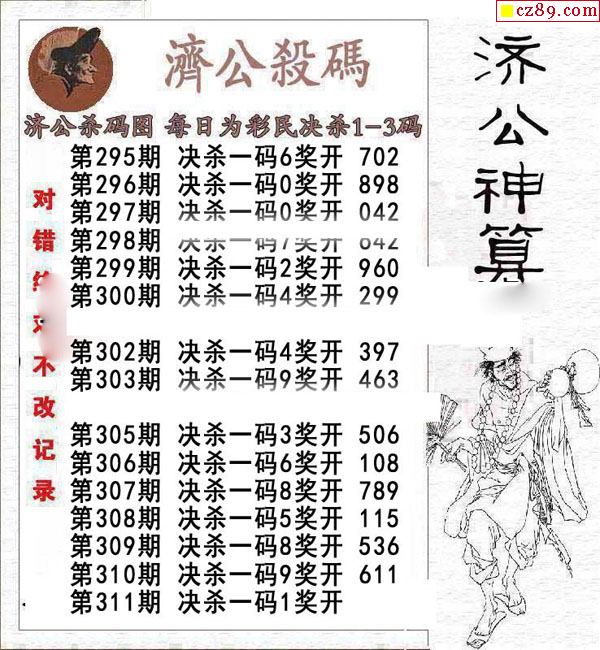 cz89.com
濟公殺碼
济公杀码图 每日为彩民决杀1-3码
第295期 决杀一码6奖开 702
第296期 决杀一码0奖开 898
第297期 决杀一码0奖开 042
第298期 决杀一码7奖开 642
第299期 决杀一码2奖开 960
第300期 决杀一码4奖开 299
第302期 决杀一码4奖开 397
第303期 决杀一码9奖开 463
第305期 决杀一码3奖开 506
第306期 决杀一码6奖开 108
第307期 决杀一码8奖开 789
第308期 决杀一码5奖开 115
第309期 决杀一码8奖开 536
第310期 决杀一码9奖开 611
第311期 决杀一码1奖开
对错 不改记录
济公神算